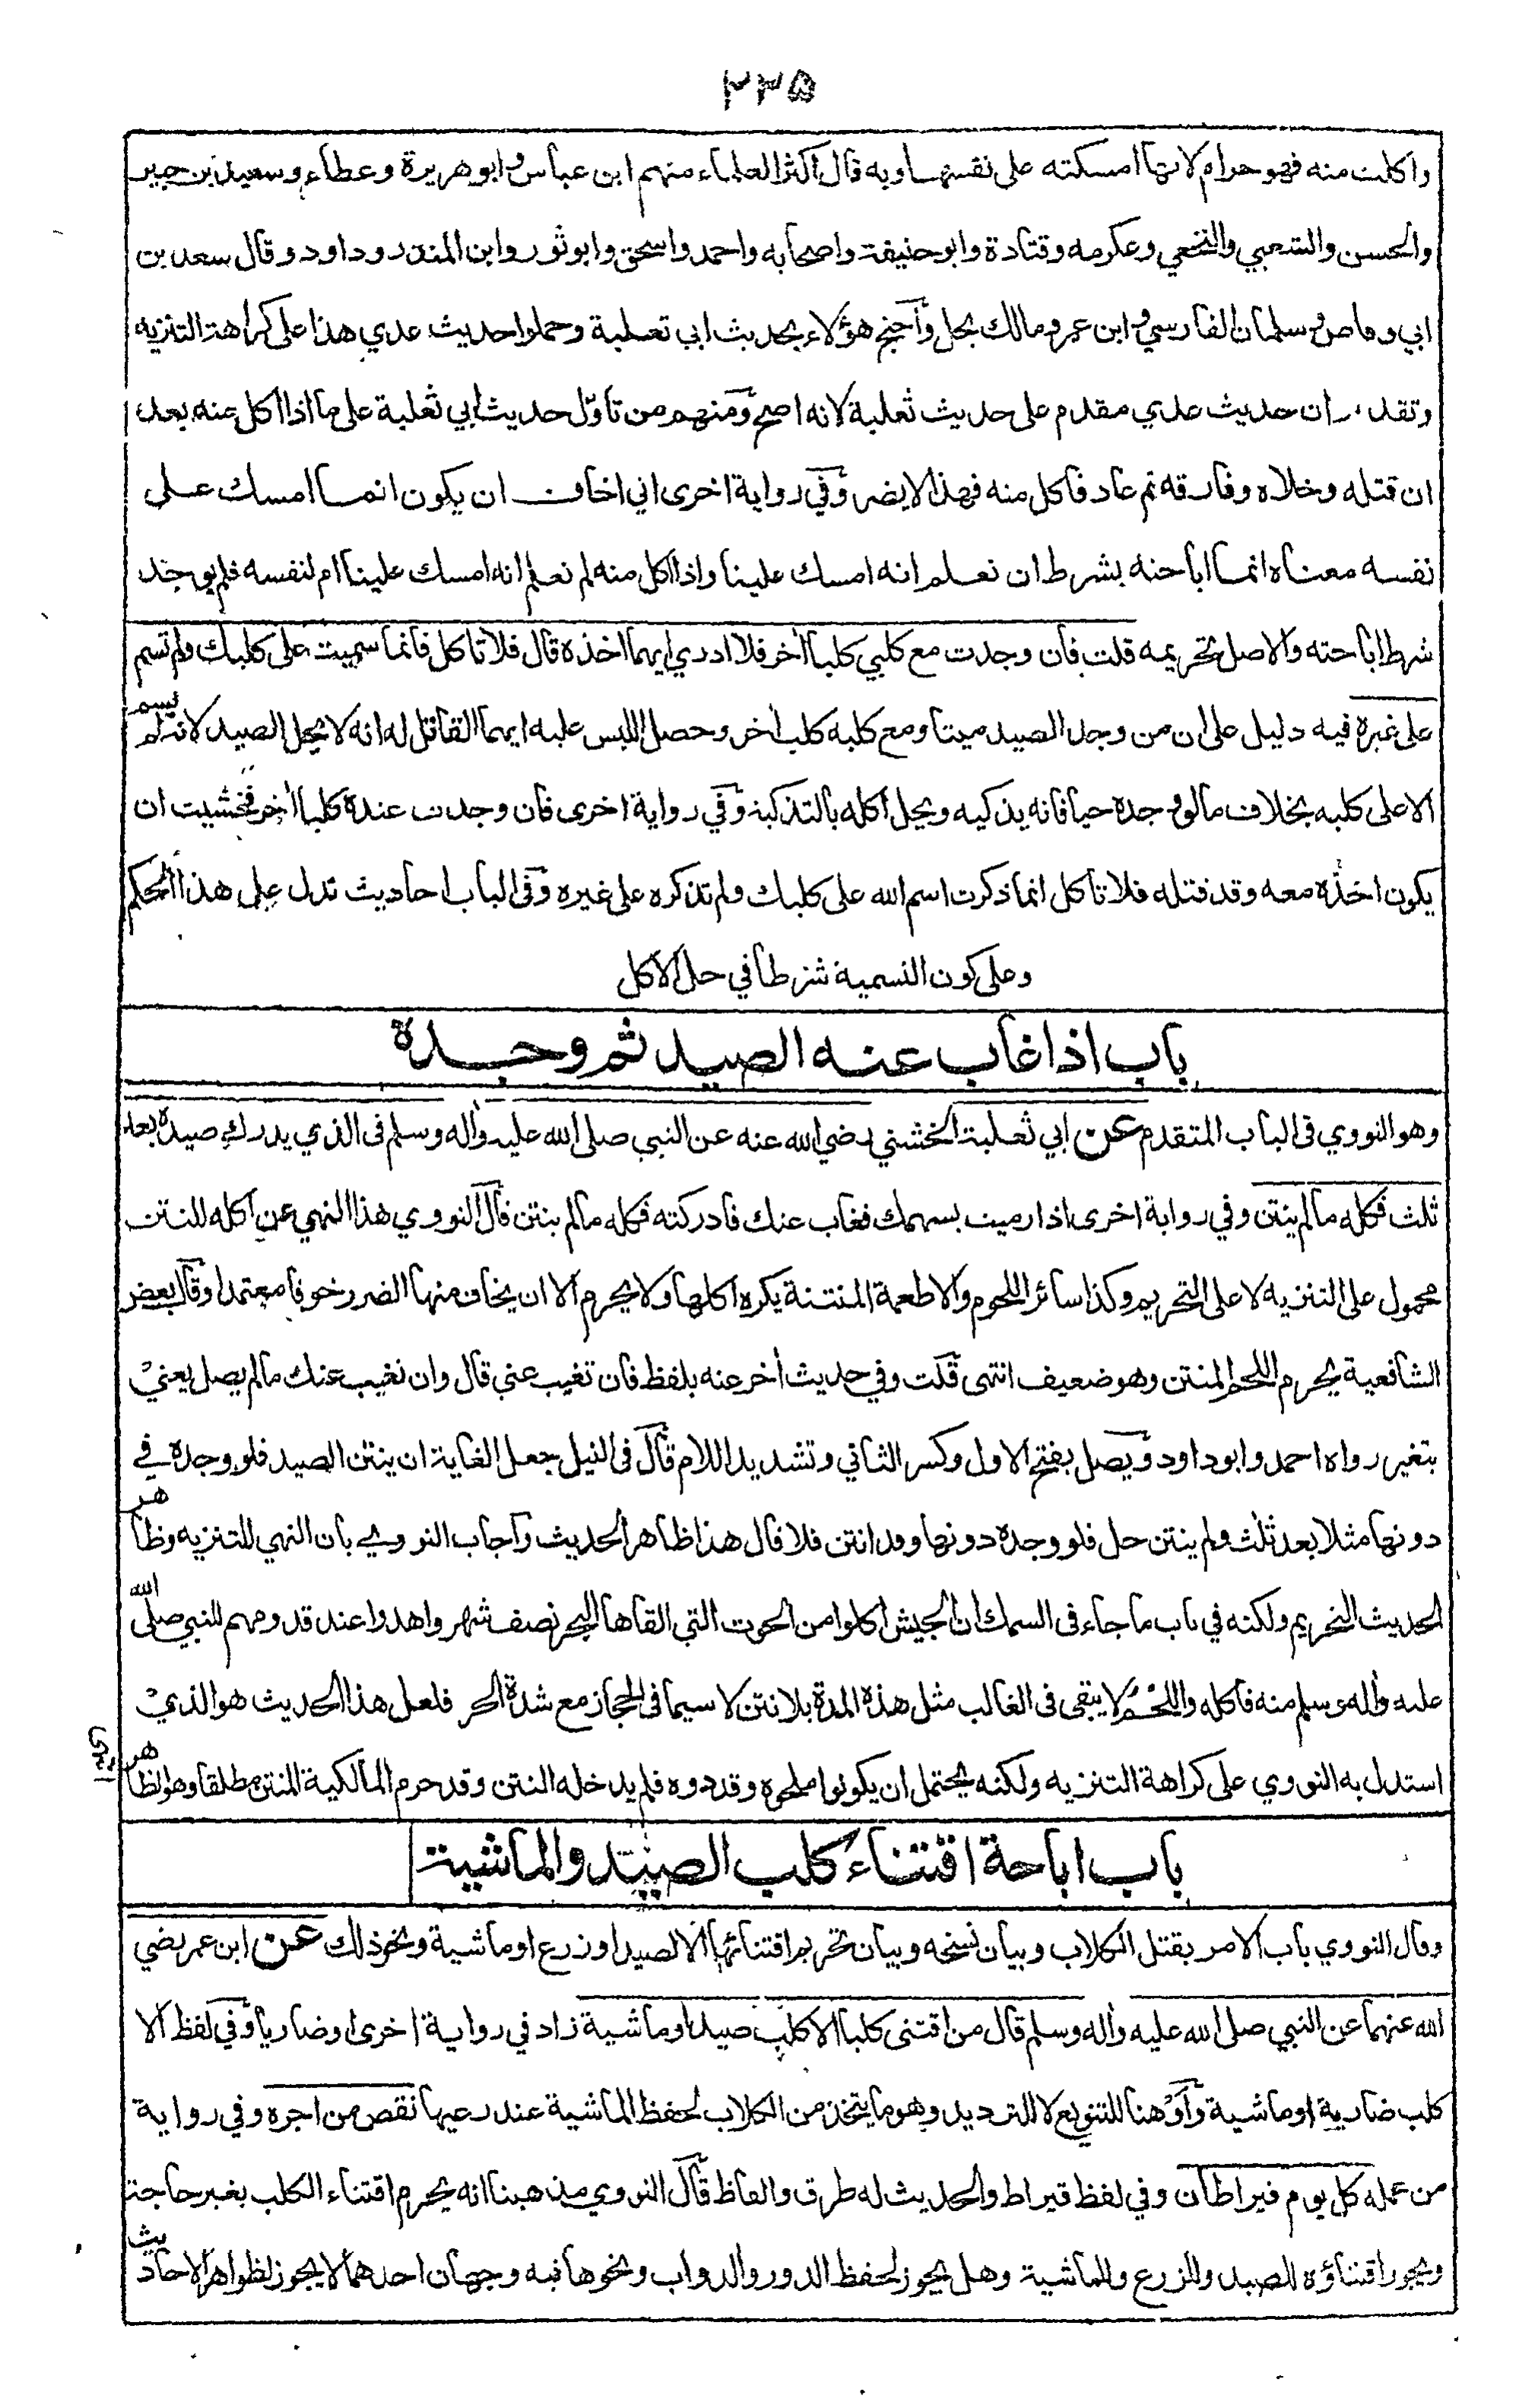 ٢٣٥
واكلت منه فهو حرام لانها امسكته على نفسها وبه قال اكثر العلماء منهم ابن عباس وابو هريرة وعطاء وسعيد بن جبير
والحسن والشعبي والنخعي وعكرمه وقتادة وابو حنيفة واصحابه واحمد واسحق وابو ثور وابن المنذر وداود وقال سعد بن
ابي وقاص وسلمان الفارسي وابن عمر ومالك يحل وآحتج هؤلاء بحديث ابي ثعلبة وحملوا حديث عدي هذا على كراهة التنزيه
وتقدم ان حديث عدي مقدم على حديث ثعلبة لانه اصح ومنهم من تاول حديث ابي ثعلبة على ما اذا اكل عنه بعد
ان قتله وخلاه وفارقه ثم عاد فاكل منه فهذا لا يضر وفي رواية اخرى اني اخاف ان يكون انما امسك على
نفسه معناه انما اباحته بشرط ان نعلم انه امسك علينا واذا اكل منه لم نعلم انه امسك علينا ام لنفسه فلم يوجد
شرط اباحته والاصل تحريمه قلت فان وجدت مع كلبي كلبا آخر فلا ادري ايهما اخذه قال فلا تاكل فانما سميت على كلبك ولم تسم
على غيره فيه دليل على ان من وجد الصيد ميتا ومع كلبه كلب اخر وحصل اللبس عليه ايهما القاتل له انه لا يحل الصيد لانه لم يسم
الا على كلبه بخلاف ما لو وجده حيا فانه يذكيه ويحل اكله بالتذكية وفي رواية اخرى فان وجدت عنده كلبا آخر فخشيت ان
يكون اخذه معه وقد قتله فلا تاكل انما ذكرت اسم الله على كلبك ولم تذكره على غيره وفى الباب احاديث تدل على هذا الحكم
وعلى كون التسمية شرطا في حل الاكل
باب اذا غاب عنه الصيد ثم وجده
وهو النووي فى الباب المتقدم عن ابي ثعلبة الخشني رضي الله عنه عن النبي صلى الله عليه وآله وسلم فى الذي يدرك صيده بعد
ثلث فكله ما لم ينتن وفي رواية اخرى اذا رميت بسهمك فغاب عنك فادركته فكله ما لم ينتن قال النووي هذا النهي عن اكله للنتن
محمول على التنزيه لا على التحريم وكذا سائر اللحوم والاطعمة المنتنة يكره اكلها ولا يحرم الا ان يخاف منها الضرر خوفا معتمدا وقال بعض
الشافعية يحرم اللحم المنتن وهو ضعيف انتهى قلت وفي حديث آخر عنه بلفظ فان تغيب عني قال وان تغيب عنك ما لم يصل يعني
يتغير رواه احمد وابو داود ويصل بفتح الاول وكسر الثاني وتشديد اللام قال فى النيل جعل الغاية ان ينتن الصيد فلو وجده في
دونها مثلا بعد ثلث ولم ينتن حل فلو وجده دونها وقد انتن فلا قال هذا ظاهر الحديث وآجاب النووي بان النهي للتنزيه وظاهر
الحديث التحريم ولكنه في باب ما جاء فى السمك ان الجيش اكلوا من الحوت التي القاها البحر نصف شهر واهدوا عند قدومهم للنبي صلى الله
عليه وآله وسلم منه فاكله واللحم لا يبقى فى الغالب مثل هذه المدة بلا نتن لا سيما فى الحجاز مع شدة الحر فلعل هذا الحديث هو الذي
استدل به النووي على كراهة التنزيه ولكنه يحتمل ان يكونوا ملحوه وقددوه فلم يدخله النتن وقد حرم المالكية المنتن مطلقا وهو الظاهر انتهى
باب اباحة اقتناء كلب الصيد والماشية
وقال النووي باب الامر بقتل الكلاب وبيان نسخه وبيان تحريم اقتنائها الا لصيد او زرع او ماشية ونحو ذلك عن ابن عمر رضي
الله عنهما عن النبي صلى الله عليه وآله وسلم قال من اقتنى كلبا الا كلب صيد او ماشية زاد في رواية اخرى او ضاريا وفي لفظ الا
كلب ضارية او ماشية وآو هنا للتنويع لا للترديد وهو ما يتخذ من الكلاب لحفظ الماشية عند رعيها نقص من اجره وفي رواية
من عمله كل يوم قيراطان وفي لفظ قيراط والحديث له طرق والفاظ قال النووي مذهبنا انه يحرم اقتناء الكلب بغير حاجة
ويجوز اقتناؤه للصيد وللزرع وللماشية وهل يجوز لحفظ الدور والدواب ونحوها فيه وجهان احدهما لا يجوز لظواهر الاحاديث